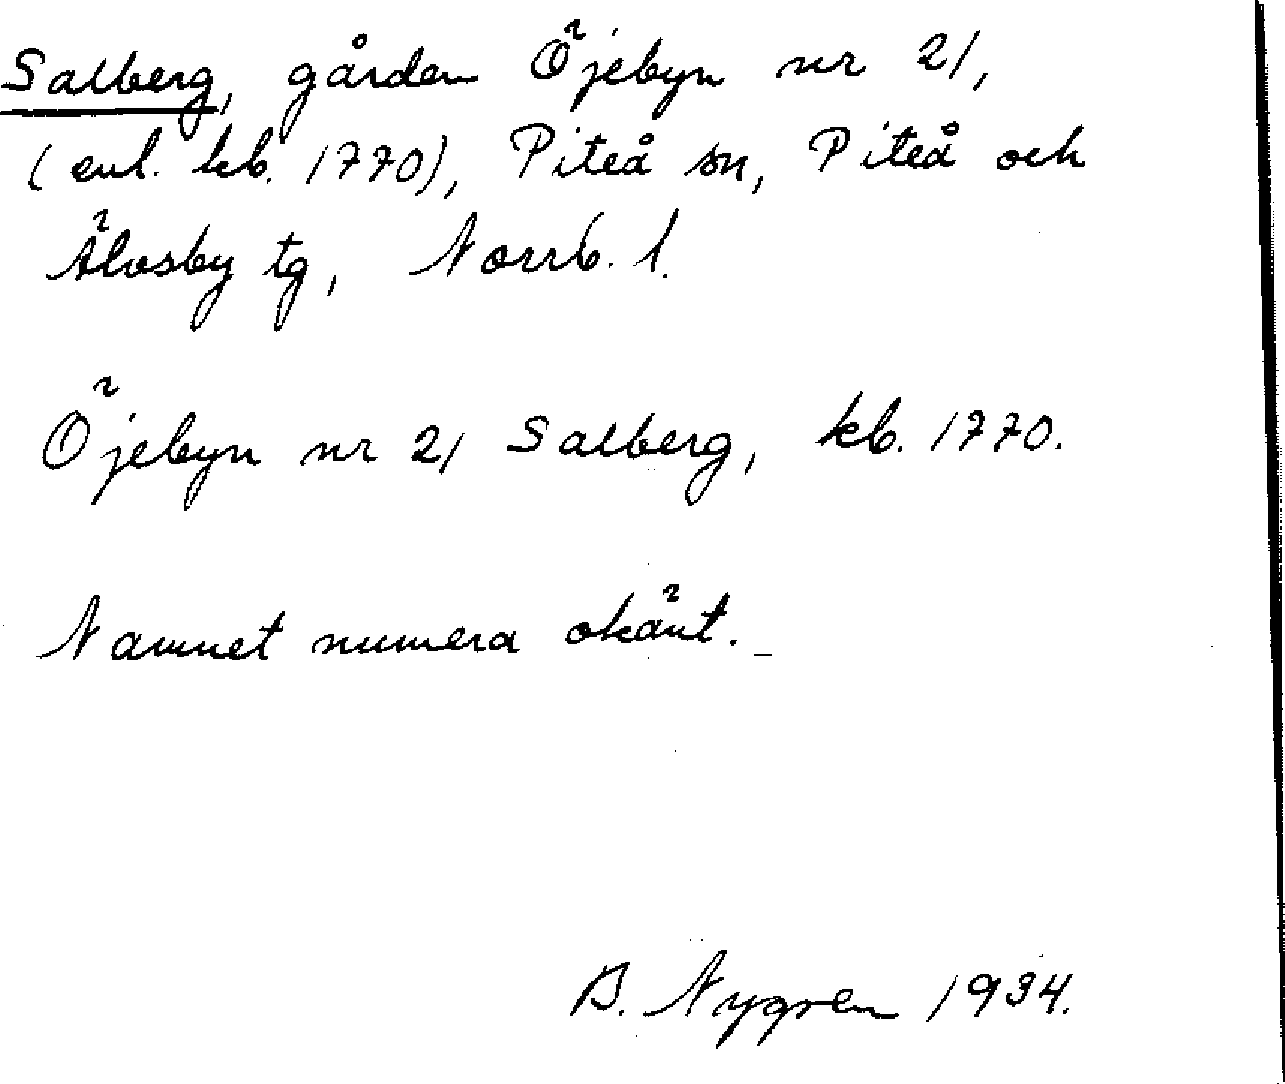 Salberg, gården Öjebyn nr 21,
(enl. kb. 1770), Piteå sn, Piteå och
Älvsby tg, Norrb. l.
Öjebyn nr 21 Salberg, kb. 1770.
Namnet numera okänt.
B. Nygren 1934.